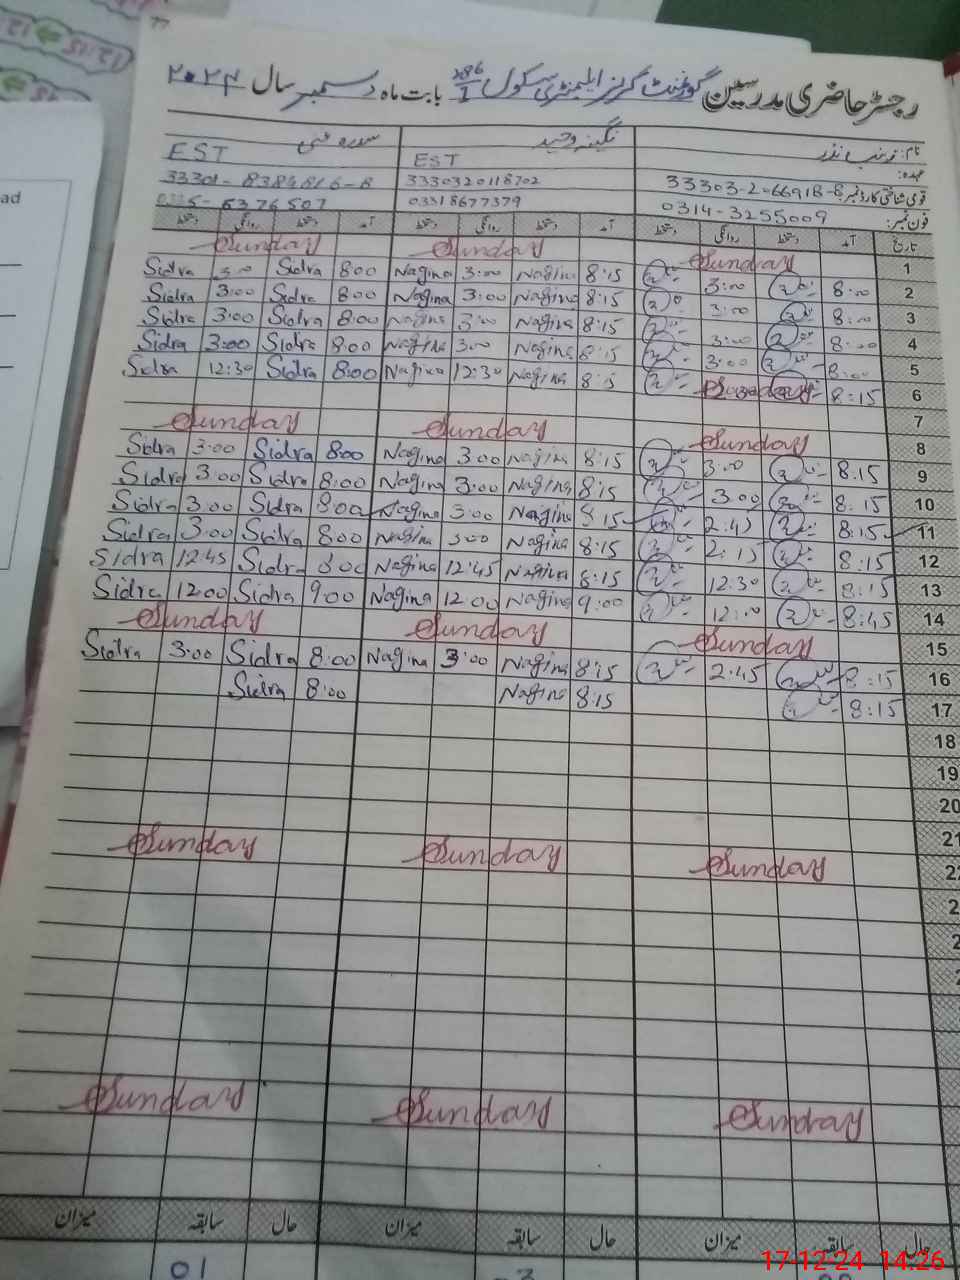 رجسٹر حاضری مدرسین گورنمنٹ گرلز ایلیمنٹری سکول 286/1 بابت ماہ دسمبر سال ۲۰۲۴
نام: زینب نذر نگینہ وحید سدرہ
عہدہ: EST EST
قومی شناختی کارڈ نمبر: 33303-2066918-8 3330320118702 33301-8384816-8
فون نمبر: 0314-3255009 03318677379 6376507
تاریخ آمد دستخط روانگی دستخط آمد دستخط روانگی دستخط آمد دستخط روانگی دستخط
Sunday Sunday Sunday 1
Sidra 3:00 Sidra 8:00 Nagina 3:00 Nagina 8:15 3:00 8:00 2
Sidra 3:00 Sidra 8:00 Nagina 3:00 Nagina 8:15 3:00 8:00 3
Sidra 3:00 Sidra 8:00 Nagina 3:00 Nagina 8:15 3:00 8:00 4
Sidra 3:00 Sidra 8:00 Nagina 3:00 Nagina 8:15 3:00 8:00 5
Sidra 12:30 Sidra 8:00 Nagina 12:30 Nagina 8:15 8:15 6
7
Sunday Sunday Sunday 8
Sidra 3:00 Sidra 8:00 Nagina 3:00 Nagina 8:15 3:00 8:15 9
Sidra 3:00 Sidra 8:00 Nagina 3:00 Nagina 8:15 3:00 8:15 10
Sidra 3:00 Sidra 8:00 Nagina 3:00 Nagina 8:15 2:45 8:15 11
Sidra 3:00 Sidra 8:00 Nagina 3:00 Nagina 8:15 2:15 8:15 12
Sidra 12:45 Sidra 8:00 Nagina 12:45 Nagina 8:15 12:30 8:15 13
Sidra 12:00 Sidra 9:00 Nagina 12:00 Nagina 9:00 12:00 8:45 14
Sunday Sunday Sunday 15
Sidra 3:00 Sidra 8:00 Nagina 3:00 Nagina 8:15 2:45 8:15 16
Sidra 8:00 Nagina 8:15 8:15 17
18
19
20
21
Sunday Sunday Sunday 22
Sunday Sunday Sunday
حال سابقہ میزان حال سابقہ میزان حال سابقہ میزان
01
17-12-24 14:26